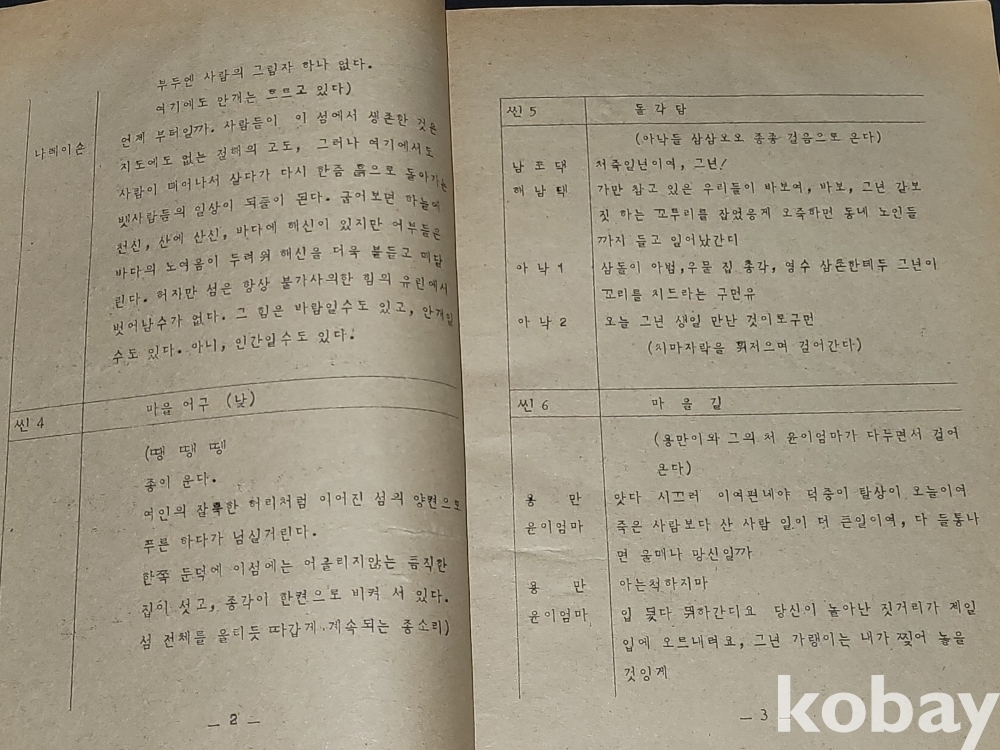 부두엔 사람의 그림자 하나 없다.
여기에도 안개는 흐르고 있다)
나레이숀 언제 부터일까. 사람들이 이 섬에서 생존한 것은
지도에도 없는 절해의 고도, 그러나 여기에서도
사람이 태어나서 살다가 다시 한줌 흙으로 돌아가는
뱃사람들의 일상이 되풀이 된다. 굽어보면 하늘에
천신, 산에 산신, 바다에 해신이 있지만 어부들은
바다의 노여움이 두려워 해신을 더욱 붙들고 매달
린다. 허지만 섬은 항상 불가사의한 힘의 유린에서
벗어날수가 없다. 그 힘은 바람일수도 있고, 안개일
수도 있다. 아니, 인간일수도 있다.
씬 4 마을 어구 (낮)
(땡 땡 땡
종이 운다.
여인의 잘룩한 허리처럼 이어진 섬의 양켠으로
푸른 하다가 넘실거린다.
한쪽 둔덕에 이섬에는 어울리지않는 듬직한
집이 섯고, 종각이 한켠으로 비켜 서 있다.
섬 전체를 울리듯 따갑게 계속되는 종소리)
— 2 —
씬 5 돌각담
(아낙들 삼삼오오 종종 걸음으로 온다)
남포댁 처죽일년이여, 그년!
해남댁 가만 참고 있은 우리들이 바보여, 바보, 그년 갈보
짓 하는 꼬투리를 잡었응게 오죽하면 동네 노인들
까지 들고 일어났간디
아낙 1 삼돌이 아범, 우물 집 총각, 영수 삼촌한테두 그년이
꼬리를 치드라는 구먼유
아낙 2 오늘 그년 생일 만난 것이로구먼
(치마자락을 휘저으며 걸어간다)
씬 6 마을길
(용만이와 그의 처 윤이엄마가 다두면서 걸어
온다)
용만 앗다 시끄러 이여편네야 덕중이 탈상이 오늘이여
윤이엄마 죽은 사람보다 산 사람 일이 더 큰일이여, 다 들통나
면 울매나 망신일까
용만 아는척하지마
윤이엄마 입 뒀다 뭐하간디요 당신이 놀아난 짓거리가 제일
입에 오르내려요, 그년 가랭이는 내가 찢어 놓을
것잉게
— 3 —
kobay